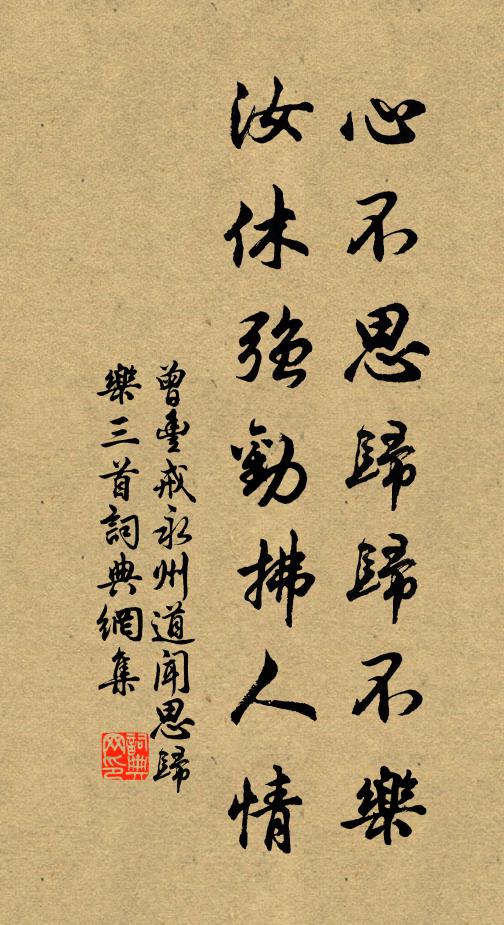 心不思歸歸不樂
汝休強勸拂人情
曾豐戒永州道聞思歸
樂三首詞典網集
詞典
网印